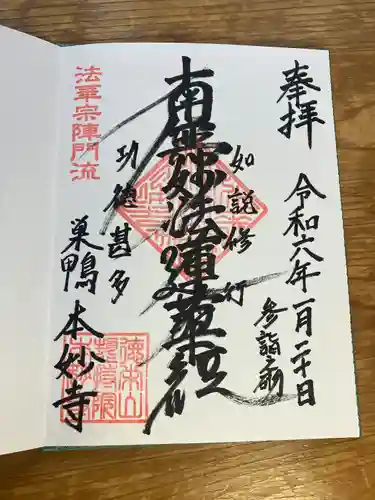 奉拝
令和六年一月二十日
参詣之刻
如説修行
南無妙法蓮華経
功徳甚多
法華宗陣門流
巣鴨 本妙寺
徳栄山